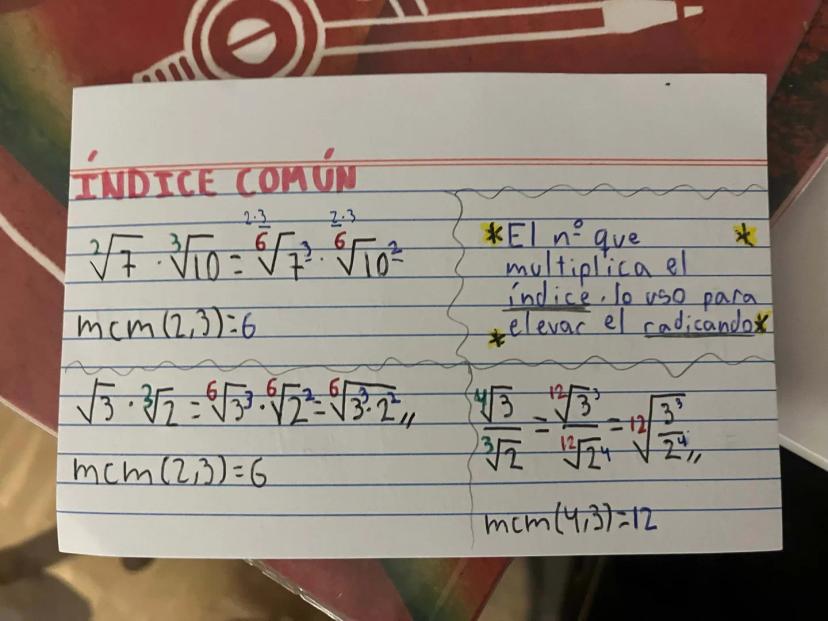 ÍNDICE COMÚN
2·3 2·3
²√7 · ³√10 = ⁶√7³ · ⁶√10²
mcm(2,3)=6
*El nº que *
multiplica el
índice lo uso para
*elevar el radicando*
√3 · ³√2 = ⁶√3³ · ⁶√2² = ⁶√3³·2² //
mcm(2,3)=6
⁴√3 / ³√2 = ¹²√3³ / ¹²√2⁴ = ¹²√(3³/2⁴) //
mcm(4,3)=12